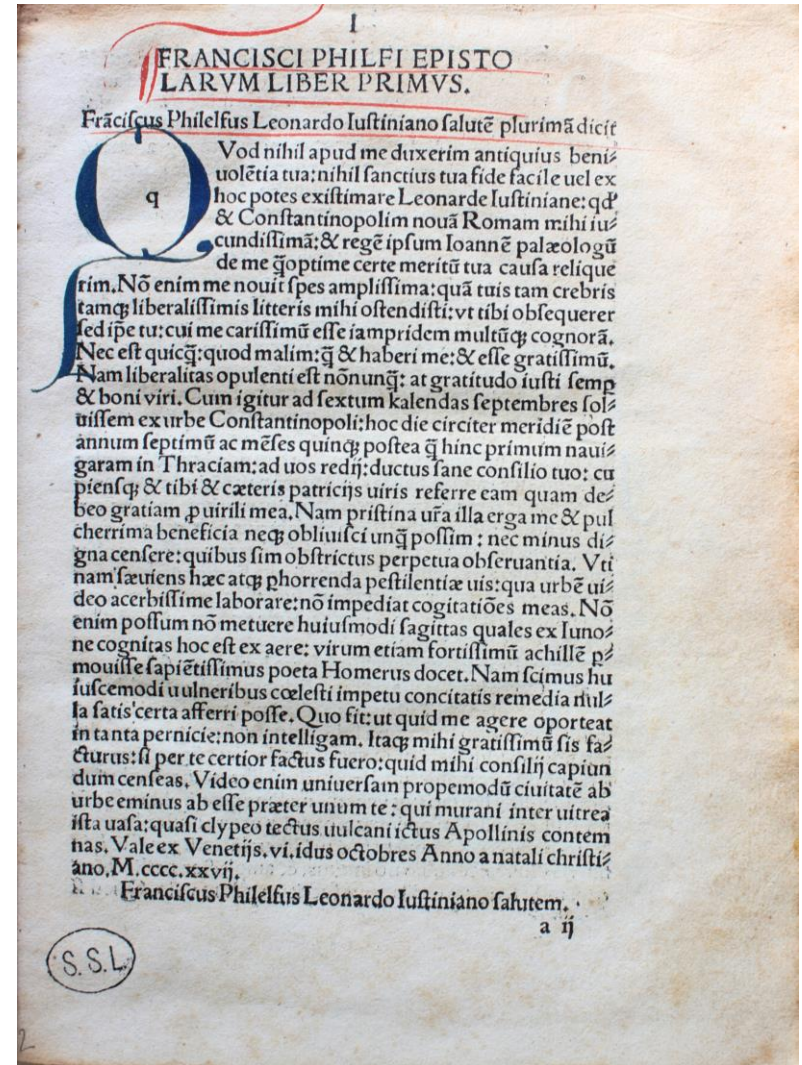 I
FRANCISCI PHILFI EPISTO
LARVM LIBER PRIMVS.
Frãciſcus Philelfus Leonardo Iuſtiniano ſalutẽ plurimã dicit
q
QVod nihil apud me duxerim antiquius beni⸗
uolẽtia tua: nihil ſanctius tua fide facile uel ex
hoc potes exiſtimare Leonarde Iuſtiniane: qđ
& Conſtantinopolim nouã Romam mihi iu⸗
cundiſſimã: & regẽ ipſum Ioannẽ palæologũ
de me q̃optime certe meritũ tua cauſa relique
rim. Nõ enim me nouit ſpes ampliſſima: quã tuis tam crebris
tamqꝫ liberaliſſimis litteris mihi oſtendiſti: vt tibi obſequerer
ſed ip̃e tu: cui me cariſſimũ eſſe iampridem multũqꝫ cognorã.
Nec eſt quicq̃: quod malim: q̃ & haberi me: & eſſe gratiſſimũ.
Nam liberalitas opulenti eſt nõnunq̃: at gratitudo iuſti ſemp
& boni viri. Cum igitur ad ſextum kalendas ſeptembres ſol⸗
uiſſem ex urbe Conſtantinopoli: hoc die circiter meridiẽ poſt
annum ſeptimũ ac mẽſes quinqꝫ poſtea q̃ hinc primum naui⸗
garam in Thraciam: ad uos redij: ductus ſane conſilio tuo: cu
pienſqꝫ & tibi & cæteris patricijs uiris referre eam quam de⸗
beo gratiam ꝓ uirili mea. Nam priſtina ur̃a illa erga me & pul
cherrima beneficia neqꝫ obliuiſci unq̃ poſſim: nec minus di⸗
gna cenſere: quibus ſim obſtrictus perpetua obſeruantia. Vti
nam ſæuiens hæc atqꝫ ꝑhorrenda peſtilentiæ uis: qua urbẽ ui⸗
deo acerbiſſime laborare: nõ impediat cogitatiões meas. Nõ
enim poſſum nõ metuere huiuſmodi ſagittas quales ex Iuno⸗
ne cognitas hoc eſt ex aere: virum etiam fortiſſimũ achillẽ ꝑ⸗
mouiſſe ſapiẽtiſſimus poeta Homerus docet. Nam ſcimus hu
iuſcemodi uulneribus cœleſti impetu concitatis remedia nul⸗
la ſatis certa afferri poſſe. Quo fit: ut quid me agere oporteat
in tanta pernicie: non intelligam. Itaqꝫ mihi gratiſſimũ ſis fa⸗
cturus: ſi per te certior factus fuero: quid mihi conſilij capiun
dum cenſeas. Video enim uniuerſam propemodũ ciuitatẽ ab
urbe eminus ab eſſe præter unum te: qui murani inter uitrea
iſta uaſa: quaſi clypeo tectus uulcani ictus Apollinis contem
nas. Vale ex Venetijs. vi. idus octobres Anno a natali chriſti⸗
ano. M.cccc.xxvij.
Franciſcus Philelfus Leonardo Iuſtiniano ſalutem.
a ij
S. S. L.
2